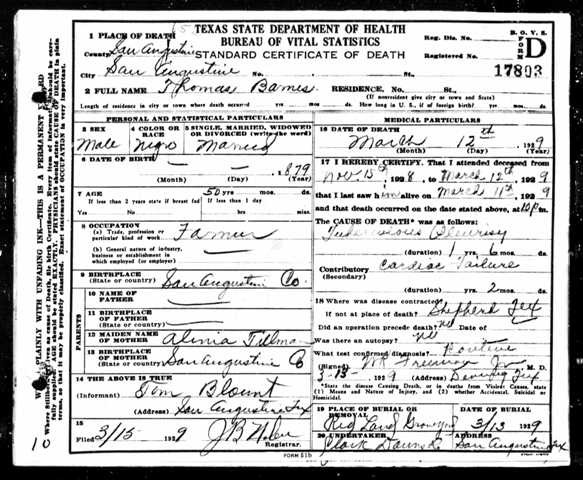 TEXAS STATE DEPARTMENT OF HEALTH
BUREAU OF VITAL STATISTICS
STANDARD CERTIFICATE OF DEATH
B. O. V. S.
FORM D
Reg. Dis. No.
Registered No.
17803
1 PLACE OF DEATH
County San Augustine
City San Augustine No. St.
2 FULL NAME Thomas Barnes RESIDENCE, No. St.
(If nonresident give city or town and State)
Length of residence in city or town where death occurred yrs. mos. ds. How long in U. S., if of foreign birth? yrs. mos. ds.
PERSONAL AND STATISTICAL PARTICULARS
3 SEX
Male
4 COLOR OR RACE
Negro
5 SINGLE, MARRIED, WIDOWED OR DIVORCED (write the word)
Married
6 DATE OF BIRTH
— — 1879
(Month) (Day) (Year)
7 AGE 50 yrs. mos. ds.
If less than 2 years state if breast fed If less than 1 day
Yes No hrs. min.
8 OCCUPATION
(a) Trade, profession or particular kind of work Farmer
(b) General nature of industry, business or establishment in which employed (or employer)
9 BIRTHPLACE
(State or country) San Augustine Co.
PARENTS
10 NAME OF FATHER
11 BIRTHPLACE OF FATHER
(State or country)
12 MAIDEN NAME OF MOTHER Tillman
13 BIRTHPLACE OF MOTHER
(State or country) San Augustine Co
14 THE ABOVE IS TRUE
(Signed) Tom Blount
(Address) San Augustine Tex
15
Filed 3/15 1929 J B
Registrar.
MEDICAL PARTICULARS
16 DATE OF DEATH
March 12th 1929
(Month) (Day) (Year)
17 I HEREBY CERTIFY, That I attended deceased from
Nov. 15th, 1928, to March 12th 1929
that I last saw him alive on March 11th, 1929
and that death occurred on the date stated above, at m.
The CAUSE OF DEATH* was as follows:
Tuberculous Pleurisy
(duration) 1 yrs. 6 mos. ds.
Contributory (Secondary) Cardiac Failure
(duration) yrs. 2 mos. ds.
18 Where was disease contracted
if not at place of death? Shepherd Tex
Did an operation precede death? No Date of
Was there an autopsy? No
What test confirmed diagnosis? Positive
(Signed) M. D.
3-13-, 1929 (Address) Tex
*State the disease Causing Death, or in deaths from Violent Causes, state (1) Means and Nature of Injury, and (2) whether Accidental, Suicidal or Homicidal.
19 PLACE OF BURIAL OR REMOVAL
Graveyard 3/13 1929
20 UNDERTAKER ADDRESS
Clark San Augustine Tex
FORM 51b
10